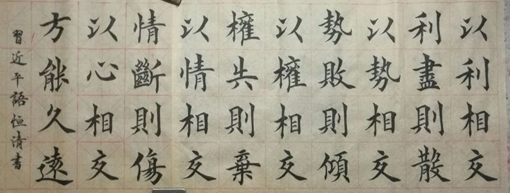 以利相交
利盡則散
以勢相交
勢敗則傾
以權相交
權失則棄
以情相交
情斷則傷
以心相交
方能久遠
習近平語恒清書